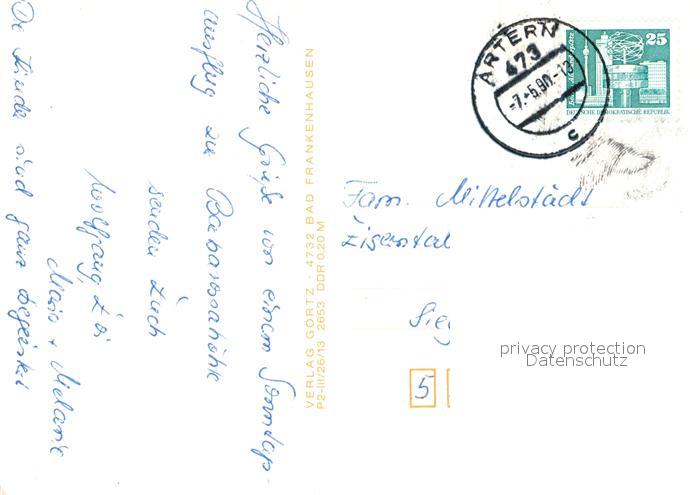 Herzliche Grüße von einem Sonntag-
ausflug zur Barbarossahöhle
senden Euch
Wolfgang,
Maria + Melanie
Die Kinder sind ganz begeistert
VERLAG GÖRTZ · 4732 BAD FRANKENHAUSEN
P2-III/26/13 2653 DDR 0,20 M
ARTERN
473
-7.-5.90.-13
c
25
DEUTSCHE DEMOKRATISCHE REPUBLIK
Fam. Mittelstädt
Eisenstal
Sieg
5
privacy protection
Datenschutz